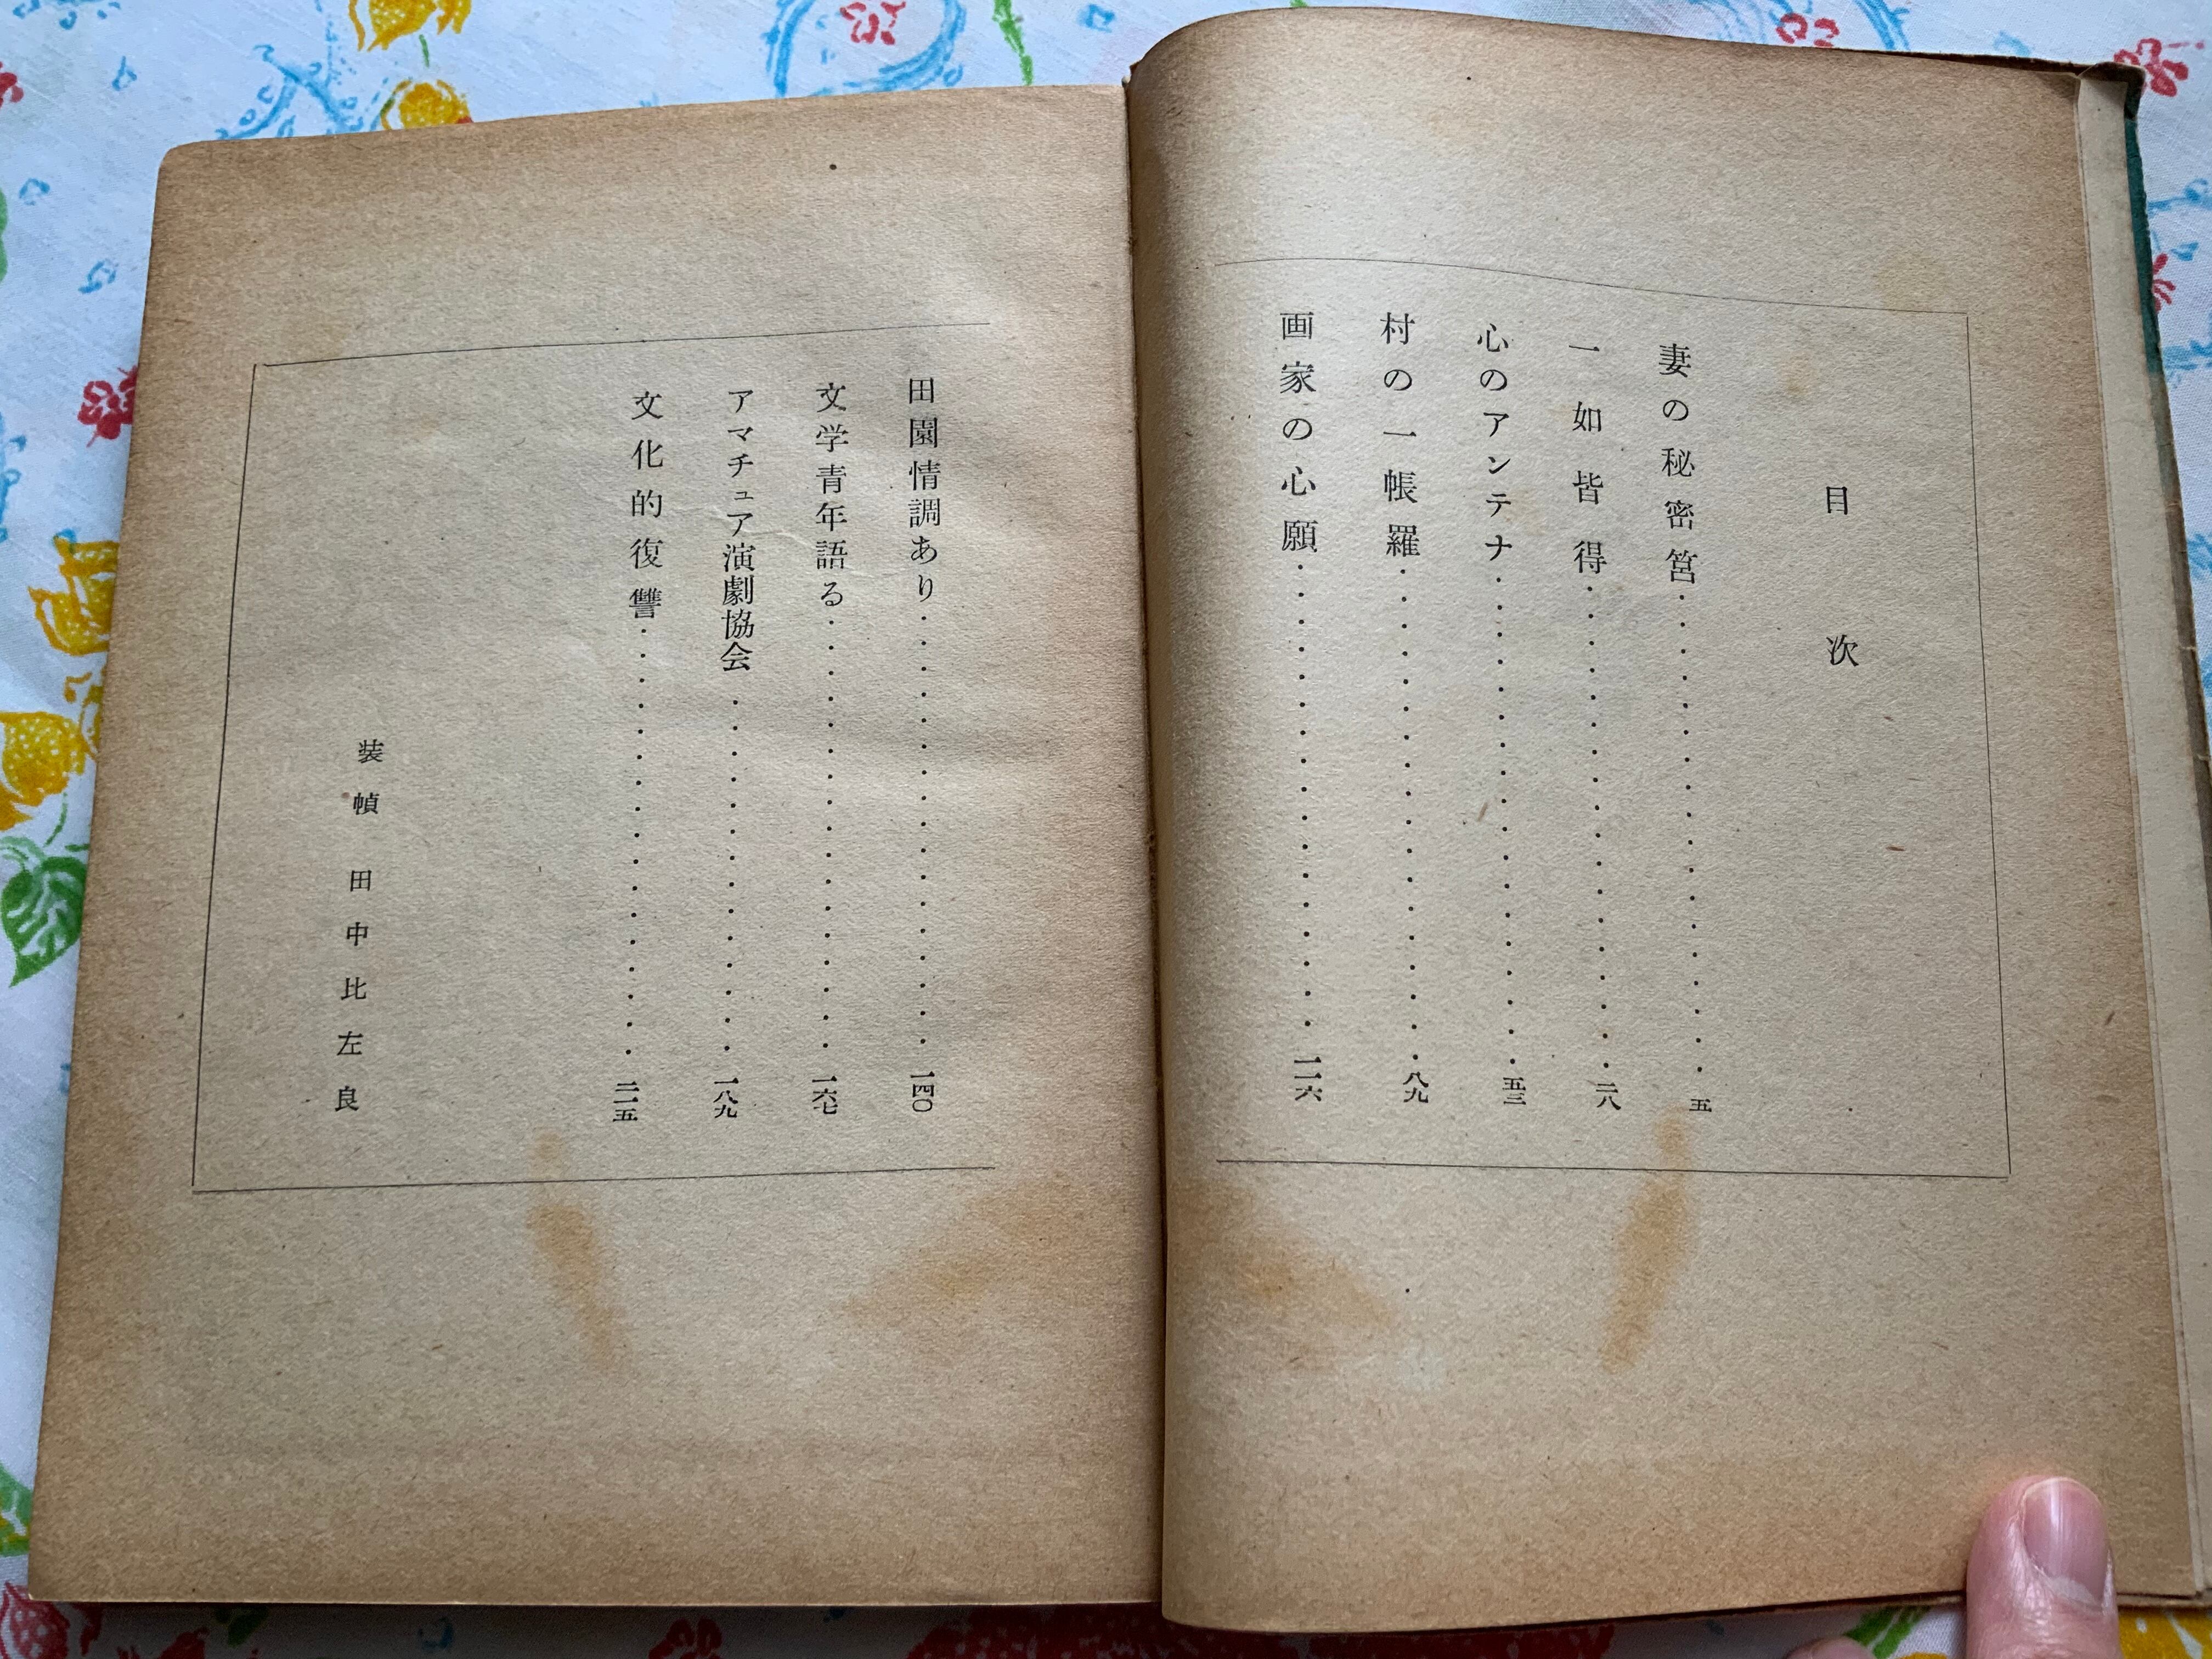 目次
妻の秘密筥・・・・・・・・・・・・・・・・・・五
一如皆得・・・・・・・・・・・・・・・・・・二八
心のアンテナ・・・・・・・・・・・・・・・・・・五三
村の一帳羅・・・・・・・・・・・・・・・・・・八九
画家の心願・・・・・・・・・・・・・・・・・・一一六
田園情調あり・・・・・・・・・・・・・・・・・・一四〇
文学青年語る・・・・・・・・・・・・・・・・・・一六七
アマチュア演劇協会・・・・・・・・・・・・・・一八九
文化的復讐・・・・・・・・・・・・・・・・・・二一五
装幀 田中比左良